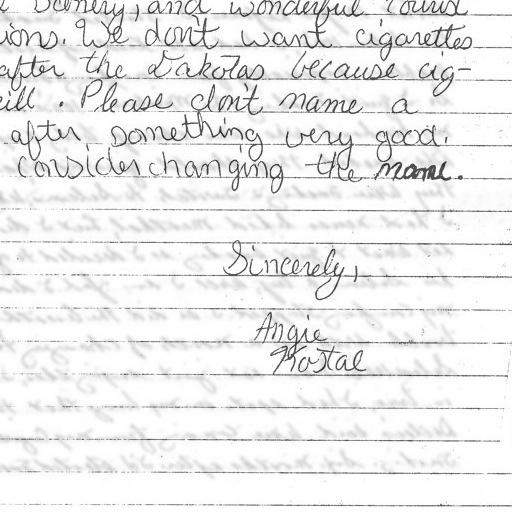 Scenery, and wonderful tourist
ions. We don't want cigarettes
after the Dakotas because cig-
ill. Please don't name a
after something very good.
consider changing the name.
Sincerely,
Angie
Kostal